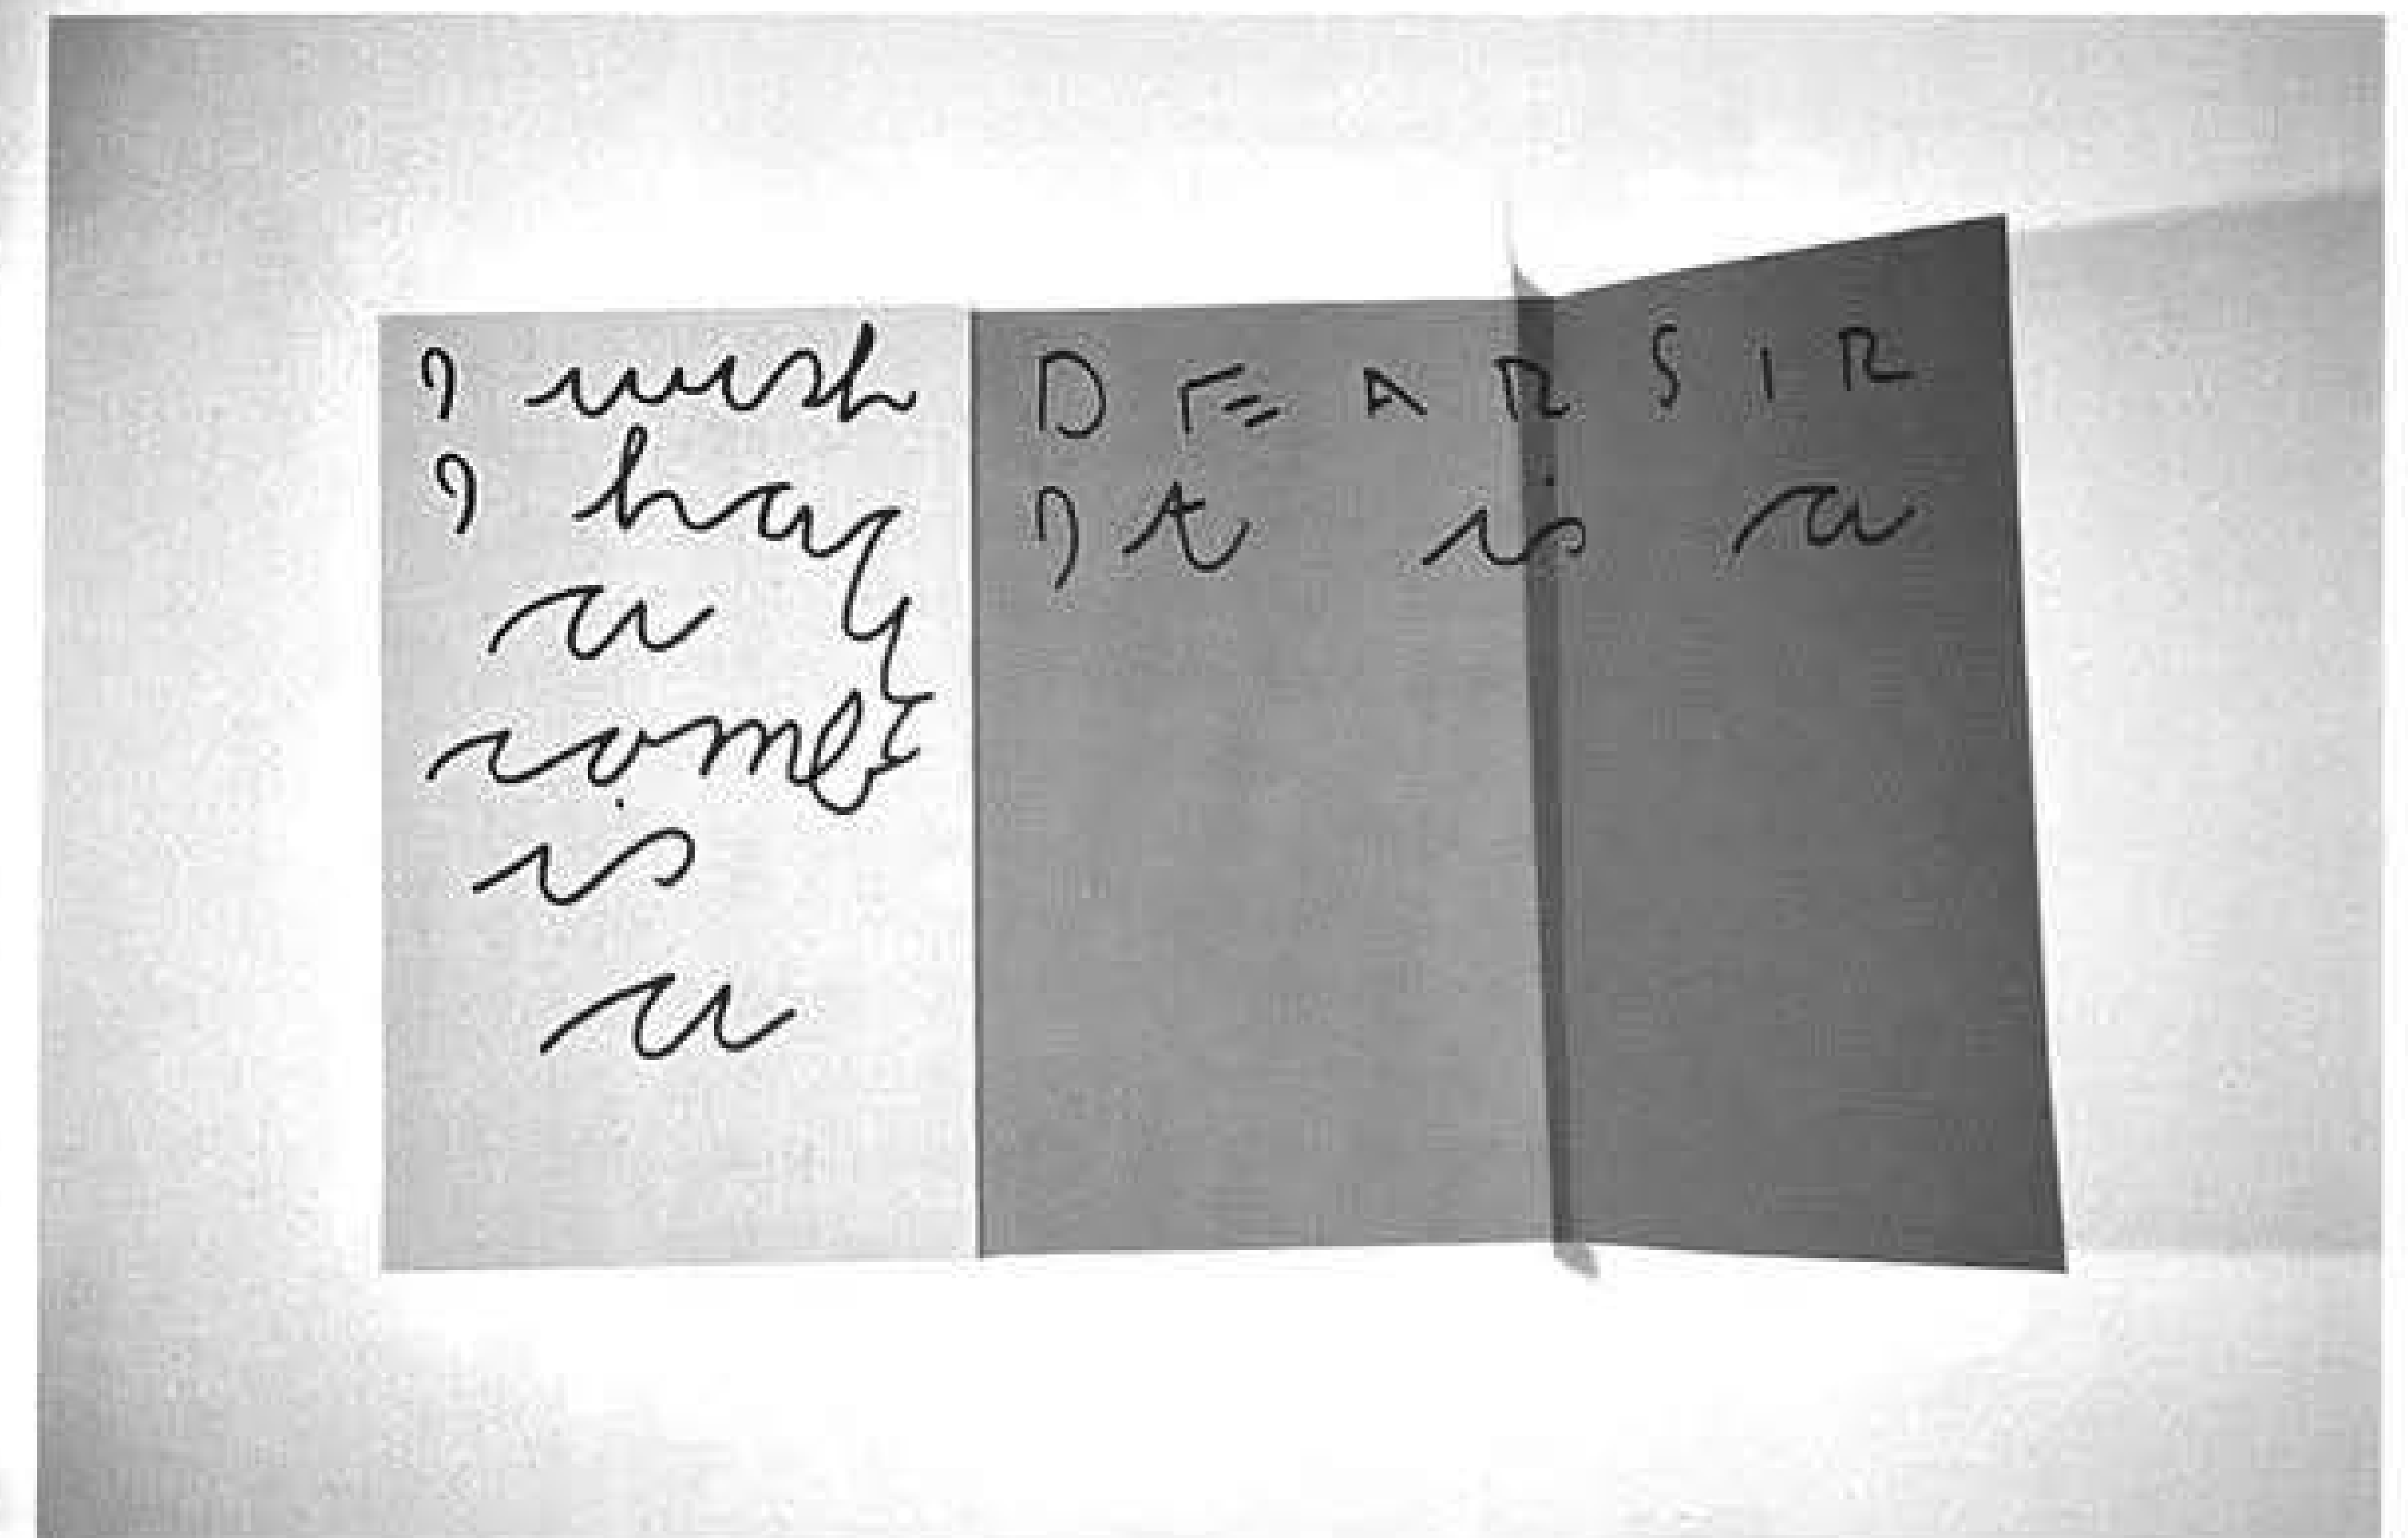 I wish
I hav
a
some
is
a
DEAR SIR
It is a